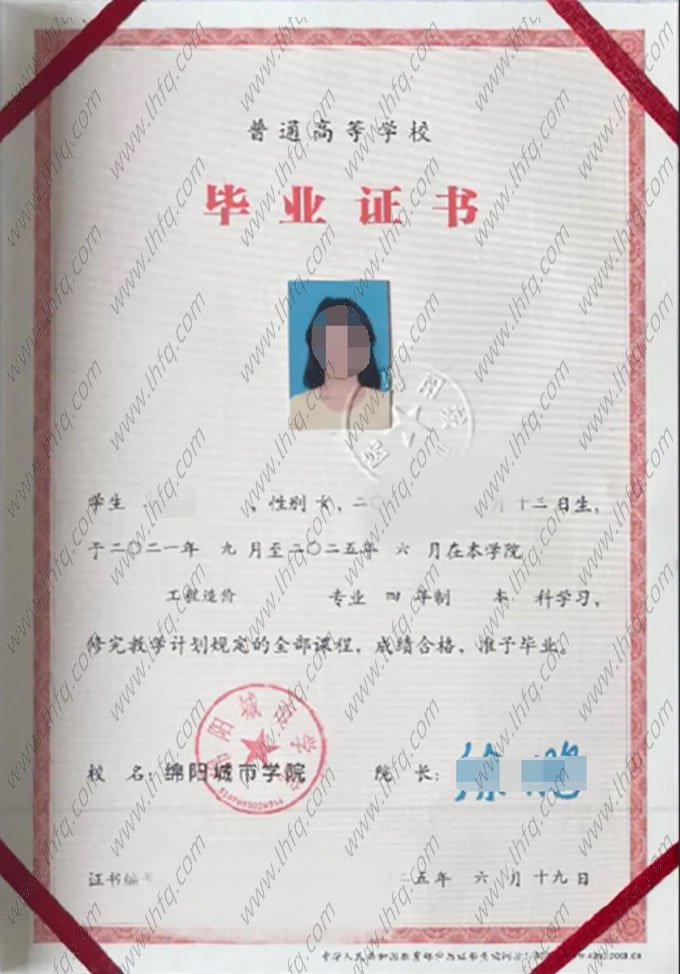 普通高等学校
毕业证书
学生 ，性别 女，二〇 月 十三 日生，
于二〇二一年 九 月至二〇二五年 六 月在本学院
工程造价 专业 四 年制 本 科学习，
修完教学计划规定的全部课程，成绩合格，准予毕业。
校 名：绵阳城市学院 院 长：
证书编号 二五年 六 月十九日
www.lhfq.com